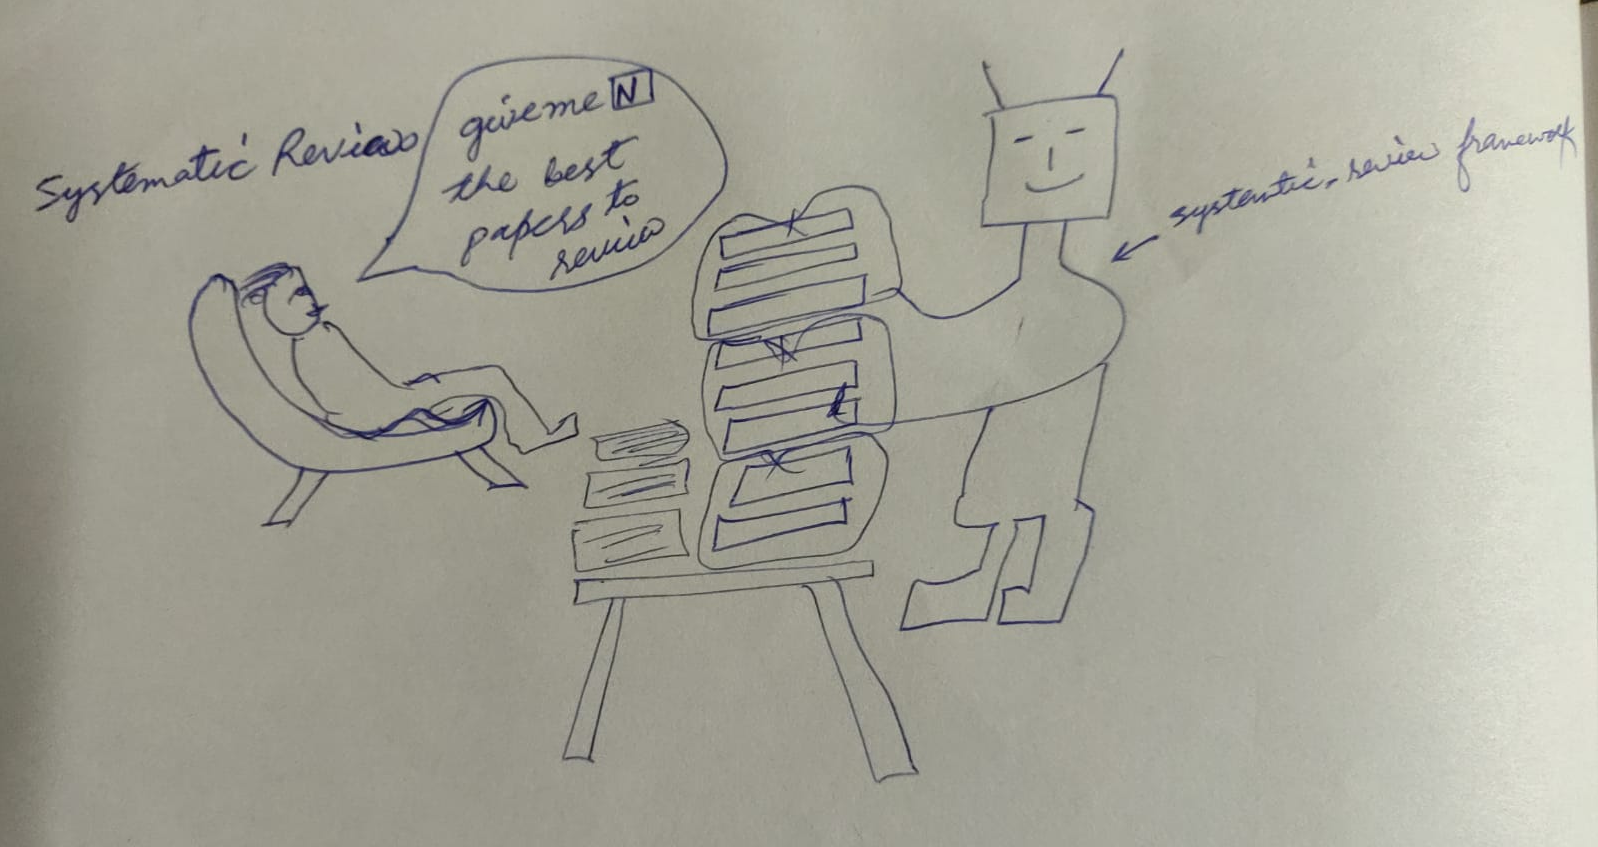 Systematic Review
give me N
the best
papers to
review
systemtic-review framework